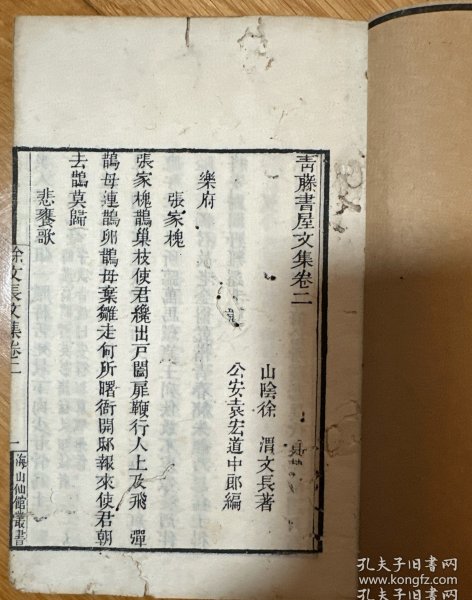 青藤書屋文集卷二
山陰徐 渭文長著
公安袁宏道中郎編
樂府
張家槐
張家槐鵲巢枝使君纔出戸闔扉鞭行人上及飛 彈
鵲母連鵲卵鵲母棄雛走何所曙衙開邸報來使君朝
去鵲莫歸
悲饔歌
徐文長文集卷二
一
海山仙館叢書
孔夫子旧书网
www.kongfz.com
孔夫子旧书网